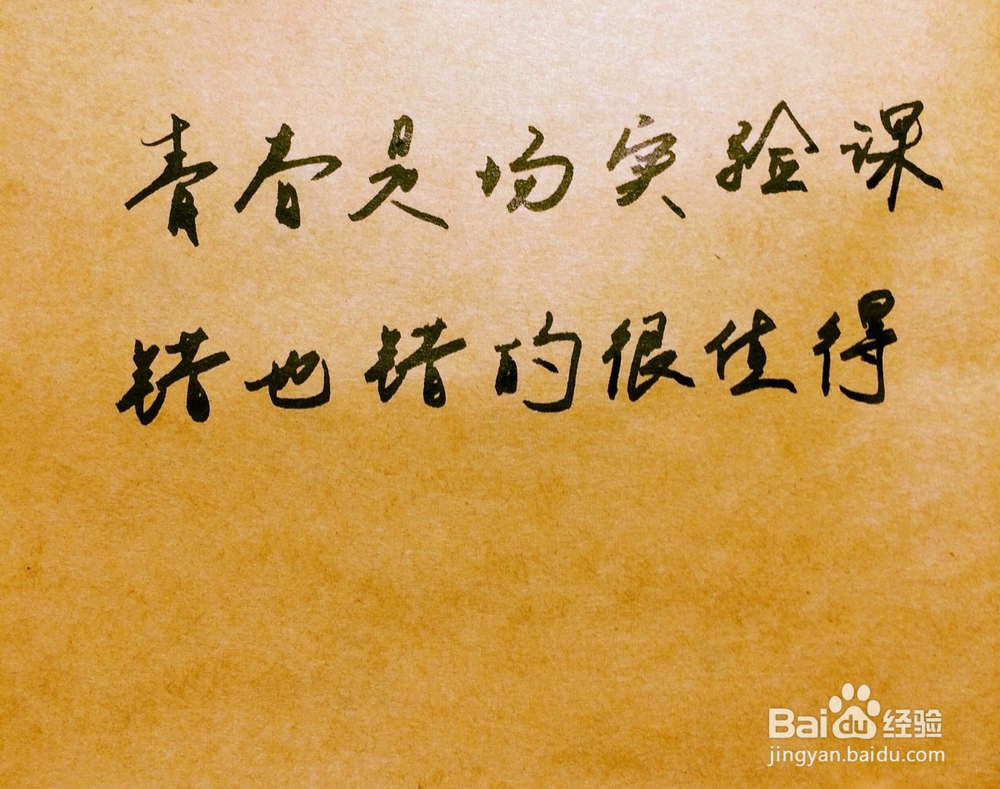 青春是场实验课
错也错的很值得
Baidu经验
jingyan.baidu.com